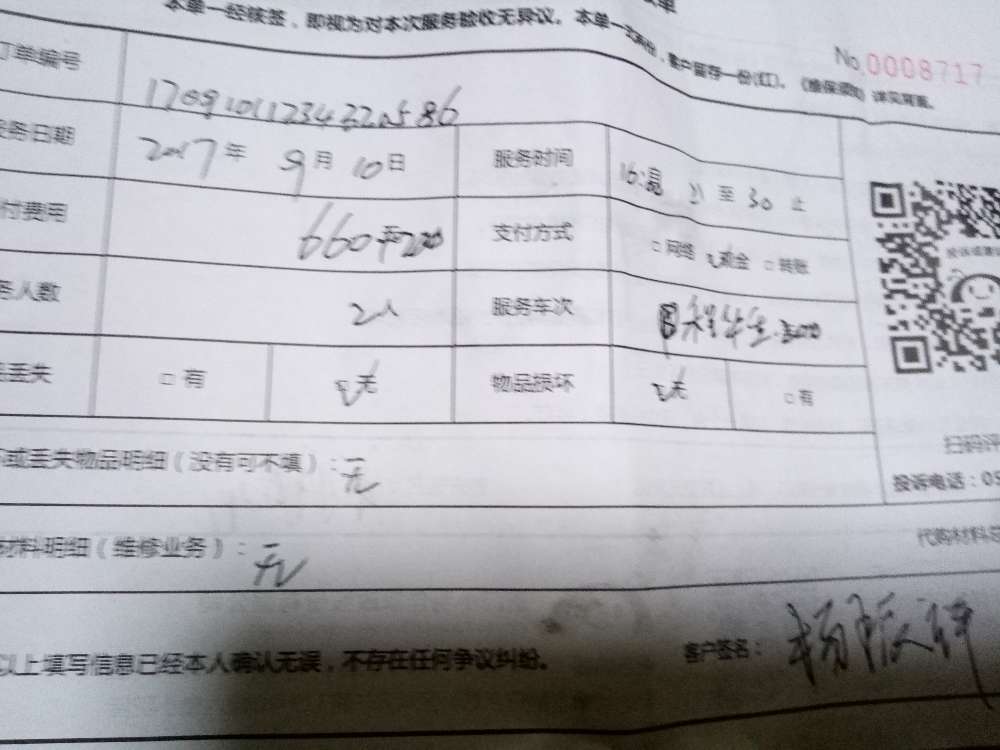 本单一经核签，即视为对本次服务验收无异议。本单一式两份，客户留存一份(红)。（维保须知）详见背面。
No.0008717
订单编号 17091011234220586
服务日期 2017年9月10日 服务时间 至30止
付费用 660 支付方式 □网络 现金 □转账
务人数 2人 服务车次
丢失 □有 无 物品损坏 无 □有
或丢失物品明细（没有可不填）：无
扫码评
投诉电话：05
材料明细（维修业务）：无
代购材料
以上填写信息已经本人确认无误，不存在任何争议纠纷。 客户签名：杨振